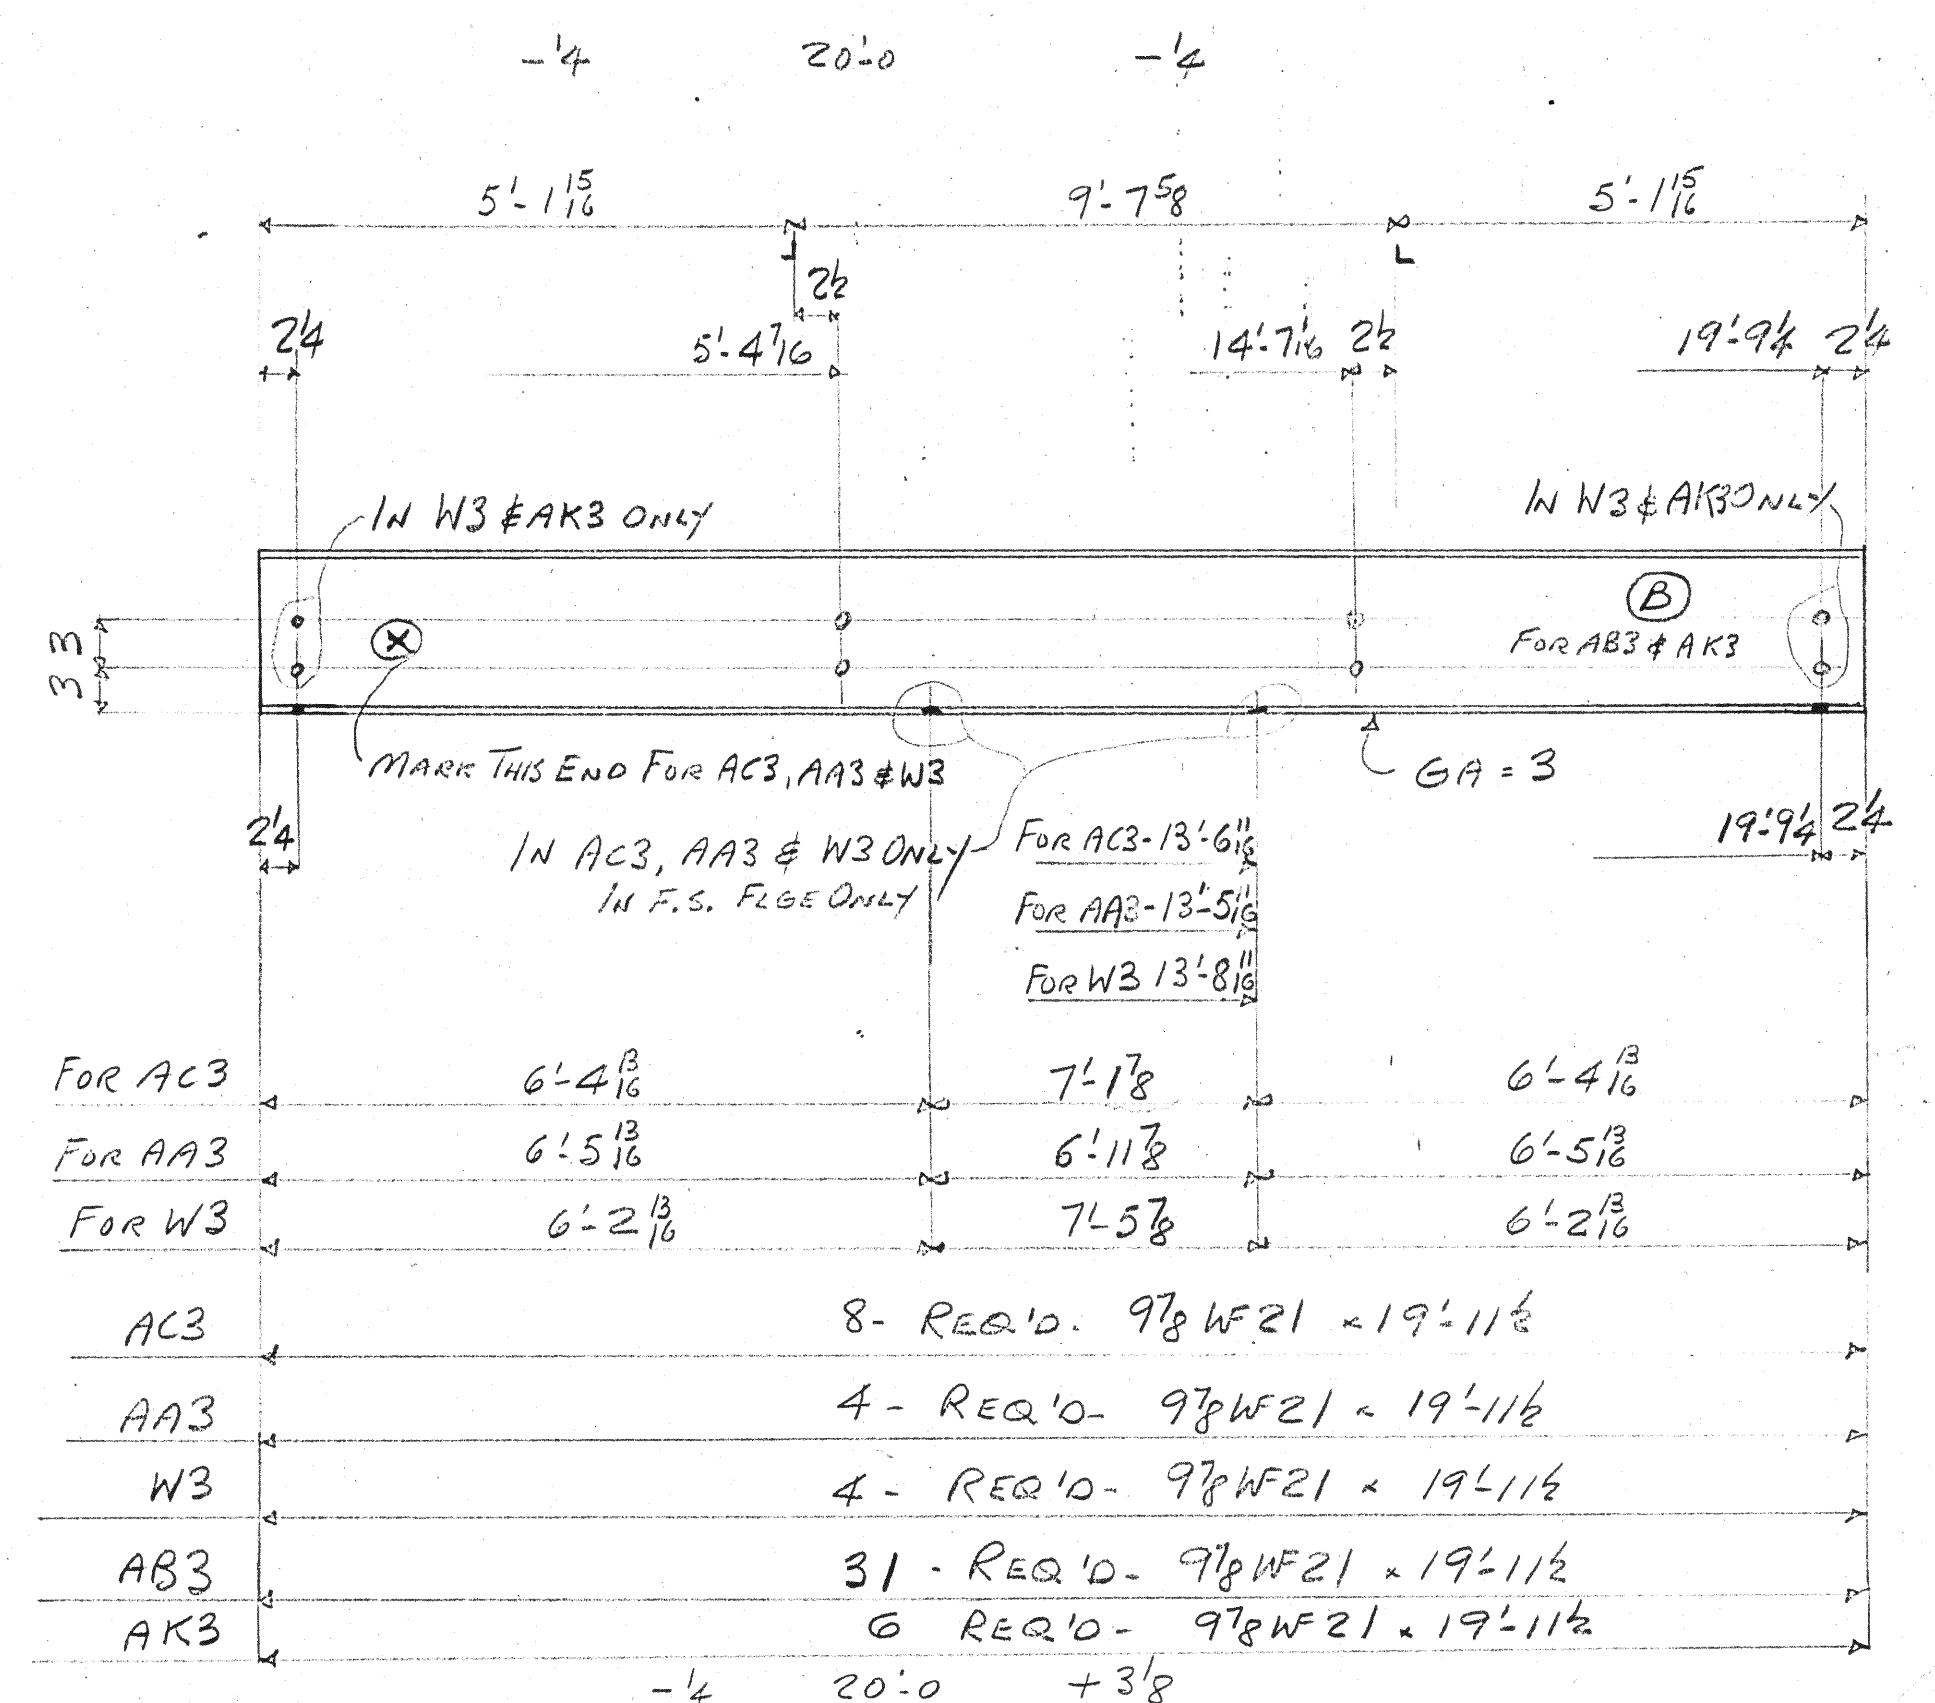 -1/4 20'-0 -1/4
5'-1 15/16 9'-7 5/8 5'-1 15/16
L L
2 1/2
2 1/4 5'-4 7/16 14'-7 1/16 2 1/2 19'-9 1/4 2 1/4
IN W3 & AK3 ONLY IN W3 & AK3 ONLY
3 3
X B
FOR AB3 & AK3
MARK THIS END FOR AC3, AA3 & W3 GA = 3
2 1/4 19'-9 1/4 2 1/4
IN AC3, AA3 & W3 ONLY
IN F.S. FLGE ONLY
FOR AC3-13'-6 11/16
FOR AA3-13'-5 11/16
FOR W3 13'-8 11/16
FOR AC3 6'-4 13/16 7'-1 7/8 6'-4 13/16
FOR AA3 6'-5 13/16 6'-11 7/8 6'-5 13/16
FOR W3 6'-2 13/16 7'-5 7/8 6'-2 13/16
AC3 8- REQ'D- 9 7/8 WF 21 x 19'-11 1/2
AA3 4- REQ'D- 9 7/8 WF 21 x 19'-11 1/2
W3 4- REQ'D- 9 7/8 WF 21 x 19'-11 1/2
AB3 31- REQ'D- 9 7/8 WF 21 x 19'-11 1/2
AK3 6 REQ'D- 9 7/8 WF 21 x 19'-11 1/2
-1/4 20'-0 +3/8